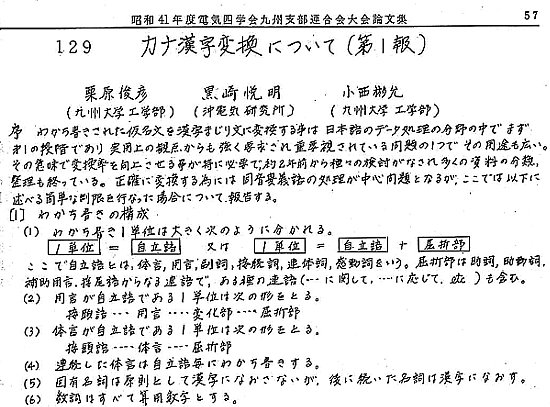 昭和41年度電気四学会九州支部連合会大会論文集 57
129 カナ漢字変換について(第1報)
栗原俊彦 黒崎悦明 小西彬光
(九州大学工学部) (沖電気研究所) (九州大学工学部)
序 わかち書きされた仮名文を漢字まじり文に変換する事は日本語のデータ処理の分野の中でまず
才1の段階であり実用上の観点からも強く要求され重要視されている問題の1つでその用途も広い。
その意味で変換率を向上させる事が特に必要で,約2年前から種々の検討がなされ多くの資料の分類,
整理も終っている。正確に変換する為には同音異義語の処理が中心問題となるが,ここでは以下に
述べる簡単な制限を行なった場合について報告する。
[1] わかち書きの構成
(1) わかち書き1単位は大きく次のように分かれる。
1単位 = 自立語 又は 1単位 = 自立語 + 屈折部
ここで自立語とは,体言,用言,副詞,接続詞,連体詞,感動詞をいう。屈折部は助詞,助動詞,
補助用言,接尾語からなる連語で,ある種の連語(…に関して,…に応じて,etc)も含む。
(2) 用言が自立語である1単位は次の形をとる。
接頭語‥‥用言‥‥変化部‥‥屈折部
(3) 体言が自立語である1単位は次の形をとる。
接頭語‥‥体言‥‥屈折部
(4) 連続した体言は自立語毎にわかち書きする。
(5) 固有名詞は原則として漢字になおさないが,後に続いた名詞は漢字になおす。
(6) 数詞はすべて算用数字とする。